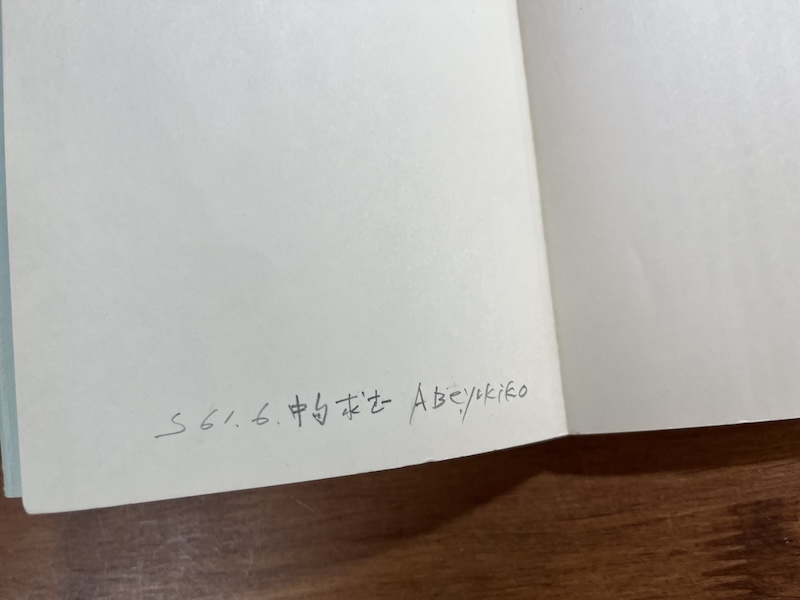 S 61. 6. 中旬 求 ABe yukiko